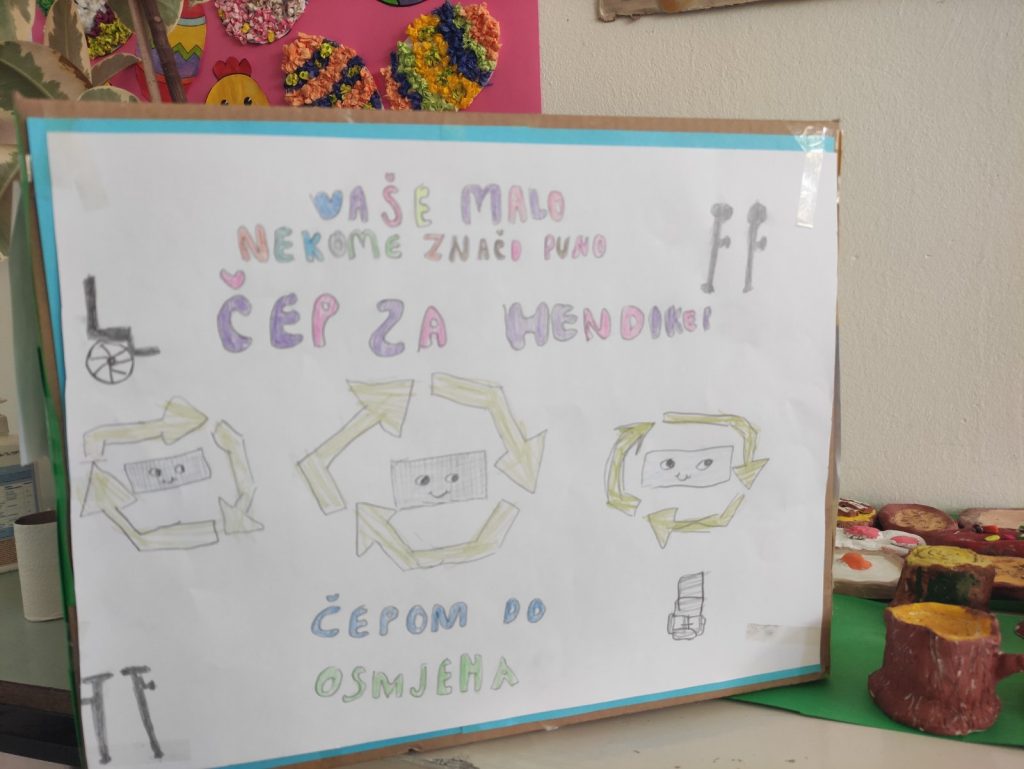 VAŠE MALO
NEKOME ZNAČI PUNO
ČEP ZA HENDIKEP
ČEPOM DO
OSMJEHA